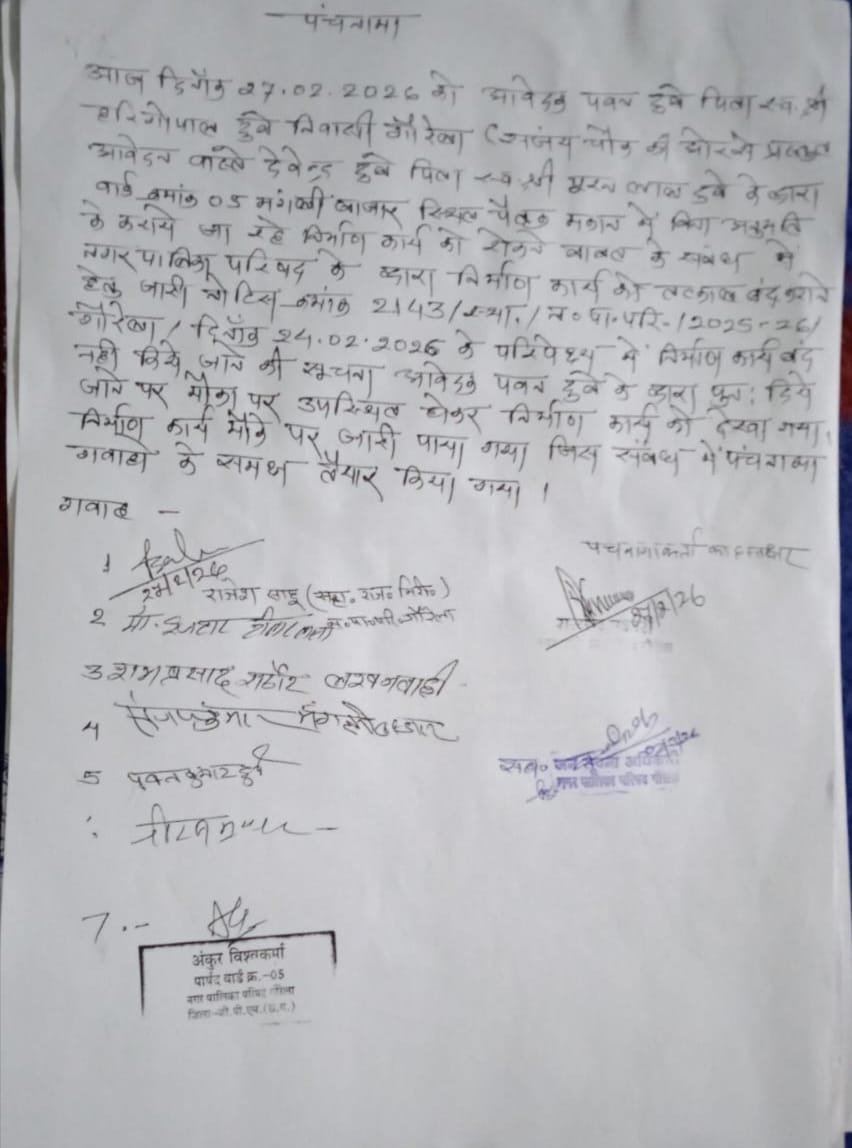 पंचनामा
आज दिनाँक 27.02.2026 को आवेदक पवन दुबे पिता स्व. श्री
हरिगोपाल दुबे निवासी गौरेला (संजय चौक की ओर से प्रस्तुत
आवेदन वास्ते देवेन्द्र दुबे पिता स्व. श्री पूरन लाल दुबे के द्वारा
वार्ड क्रमांक 05 मंगली बाजार स्थित पैतृक मकान में बिना अनुमति
के कराये जा रहे निर्माण कार्य को रोकने बाबत के संबंध में
नगर पालिका परिषद के द्वारा निर्माण कार्य को तत्काल बंद कराने
हेतु जारी नोटिस क्रमांक 2143/स्था./न.पा.परि./2025-26/
गौरेला/दिनाँक 24.02.2026 के परिपेक्ष्य में निर्माण कार्य बंद
नही किये जाने की सूचना आवेदक पवन दुबे के द्वारा पुनः दिये
जाने पर मौका पर उपस्थित होकर निर्माण कार्य को देखा गया,
निर्माण कार्य मौके पर जारी पाया गया जिस संबंध में पंचनामा
गवाहो के समक्ष तैयार किया गया।
गवाह -
पंचनामाकर्ता का हस्ताक्षर
1
27/2/26
राजेश साहू (सहा. राज. निरी.)
27/2/26
2 मो.
3 रामप्रसाद राठौर
4
सहा. जन सूचना अधिकारी
नगर पालिका परिषद गौरेला
5 पवन कुमार दुबे
7.-
अंकुर विश्वकर्मा
पार्षद वार्ड क्र.-05
नगर पालिका परिषद गौरेला
जिला-जी.पी.एम.(छ.ग.)